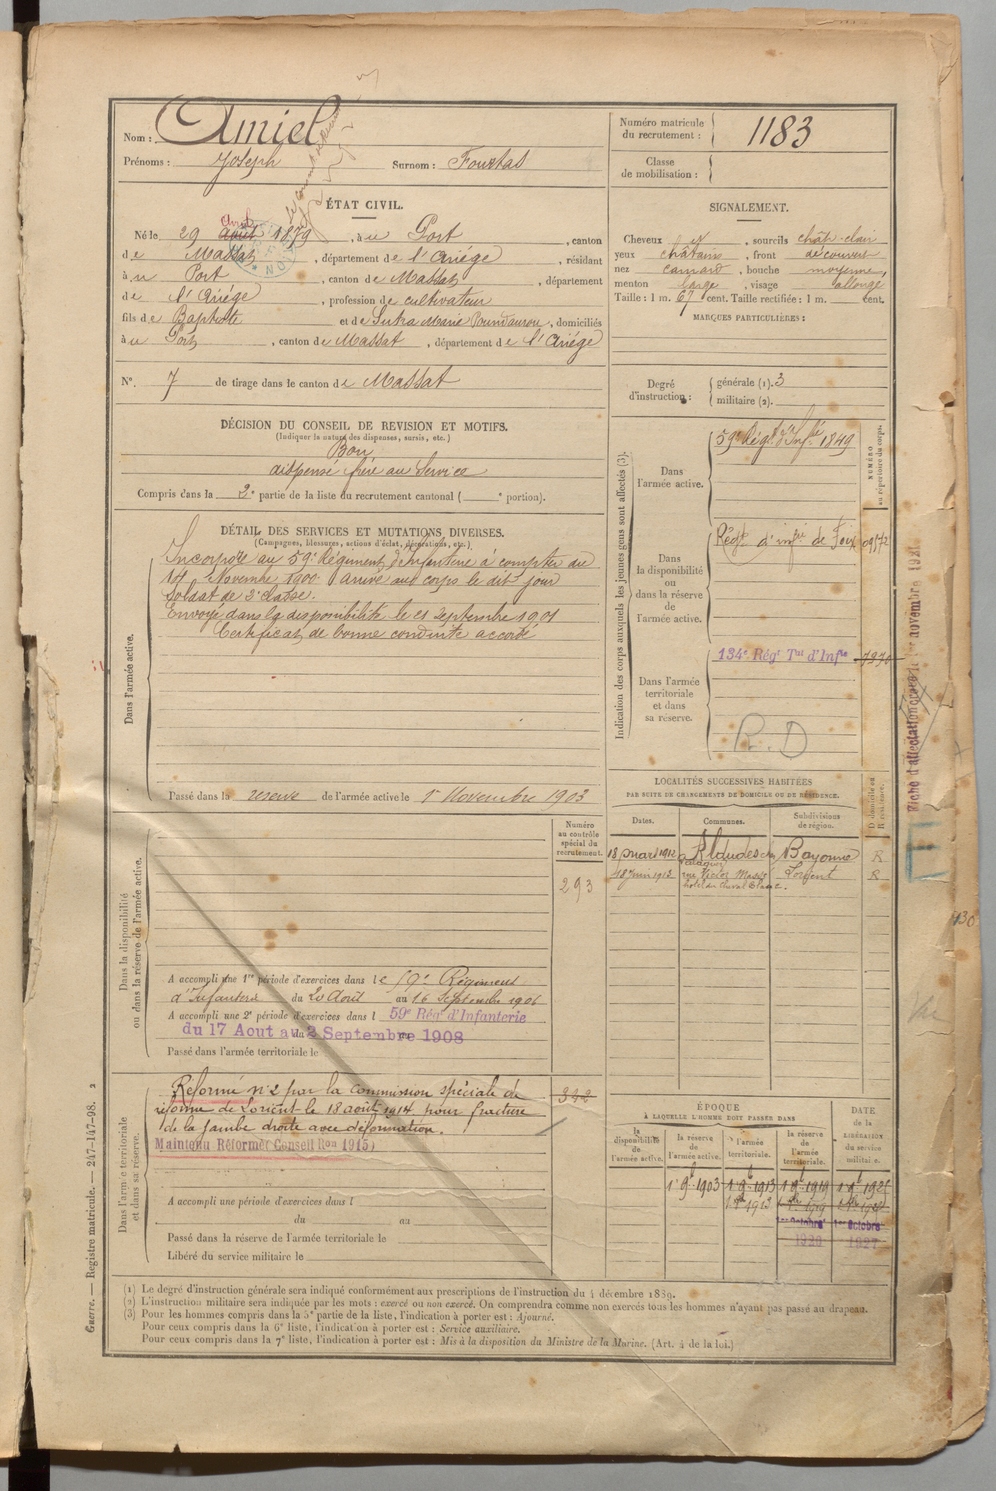 Nom : Amiel
Prénoms : Joseph Surnom : Fourtas
Numéro matricule du recrutement : 1183
Classe de mobilisation :
ÉTAT CIVIL.
Né le 29 août avril 1879, à u Port, canton
de Massat, département de l'Ariége, résidant
à u Port, canton de Massat, département
de l'Ariége, profession de cultivateur
fils de Baptiste et de Marie, domiciliés
à u Port, canton de Massat, département de l'Ariége
N° 7 de tirage dans le canton de Massat
SIGNALEMENT.
Cheveux et, sourcils chât. clair
yeux châtains, front découvert
nez camard, bouche moyenne,
menton large, visage allongé
Taille : 1 m. 67 cent. Taille rectifiée : 1 m. cent.
MARQUES PARTICULIÈRES :
Degré d'instruction : générale (1). 3
militaire (2).
DÉCISION DU CONSEIL DE REVISION ET MOTIFS.
(Indiquer la nature des dispenses, sursis, etc.)
Bon
dispensé frère au service
Compris dans la 2e partie de la liste du recrutement cantonal ( e portion).
DÉTAIL DES SERVICES ET MUTATIONS DIVERSES.
(Campagnes, blessures, actions d'éclat, décorations, etc.)
Dans l'armée active.
Incorporé au 59e Régiment d'Infanterie à compter du
14 Novembre 1900 arrivé au corps le dit jour
Soldat de 2e classe.
Envoyé dans la disponibilité le 21 Septembre 1901
Certificat de bonne conduite accordé
Passé dans la réserve de l'armée active le 1er Novembre 1903
Indication des corps auxquels les jeunes gens sont affectés (3).
NUMÉRO au répertoire du corps.
Dans l'armée active.
59e Régt d'Infie 1849
Dans la disponibilité ou dans la réserve de l'armée active.
Régt d'infie de Foix 09572
Dans l'armée territoriale et dans sa réserve.
134e Régt Tal d'Infie 7970
R.D
Fiche d'affectation créée le 1er novembre 1921.
LOCALITÉS SUCCESSIVES HABITÉES
PAR SUITE DE CHANGEMENTS DE DOMICILE OU DE RÉSIDENCE.
Dates. Communes. Subdivisions de région. D domicile ou R résidence.
18 mars 1912 Bayonne R
18 juin 1913 rue Victor Massé Lorient R
hotel du Cheval Blanc.
Dans la disponibilité ou dans la réserve de l'armée active.
Numéro au contrôle spécial du recrutement.
293
A accompli une 1re période d'exercices dans le 59e Régiment
d'Infanterie du 20 Août au 16 Septembre 1906
A accompli une 2e période d'exercices dans l 59e Rég' d'Infanterie
du 17 Aout au 2 Septembre 1908
Passé dans l'armée territoriale le
Dans l'armée territoriale et dans sa réserve.
Réformé n°2 par la commission spéciale de
réforme de Lorient le 18 août 1914 pour fracture
de la jambe droite avec déformation.
Maintenu Réformé Conseil Ron 1915)
322
A accompli une période d'exercices dans l
du au
Passé dans la réserve de l'armée territoriale le
Libéré du service militaire le
ÉPOQUE
À LAQUELLE L'HOMME DOIT PASSER DANS
la disponibilité de l'armée active. la réserve de l'armée active. l'armée territoriale. la réserve de l'armée territoriale.
DATE de la LIBÉRATION du service militaire.
1er 9b 1903 1er 9b 1913 1er 9b 1919 1er 9b 1925
1er octobre 1er octobre
1920 1927
(1) Le degré d'instruction générale sera indiqué conformément aux prescriptions de l'instruction du 4 décembre 1889.
(2) L'instruction militaire sera indiquée par les mots : exercé ou non exercé. On comprendra comme non exercés tous les hommes n'ayant pas passé au drapeau.
(3) Pour les hommes compris dans la 5e partie de la liste, l'indication à porter est : Ajourné.
Pour ceux compris dans la 6e liste, l'indication à porter est : Service auxiliaire.
Pour ceux compris dans la 7e liste, l'indication à porter est : Mis à la disposition du Ministre de la Marine. (Art. 4 de la loi.)
Guerre. — Registre matricule. — 247-147-98. 2